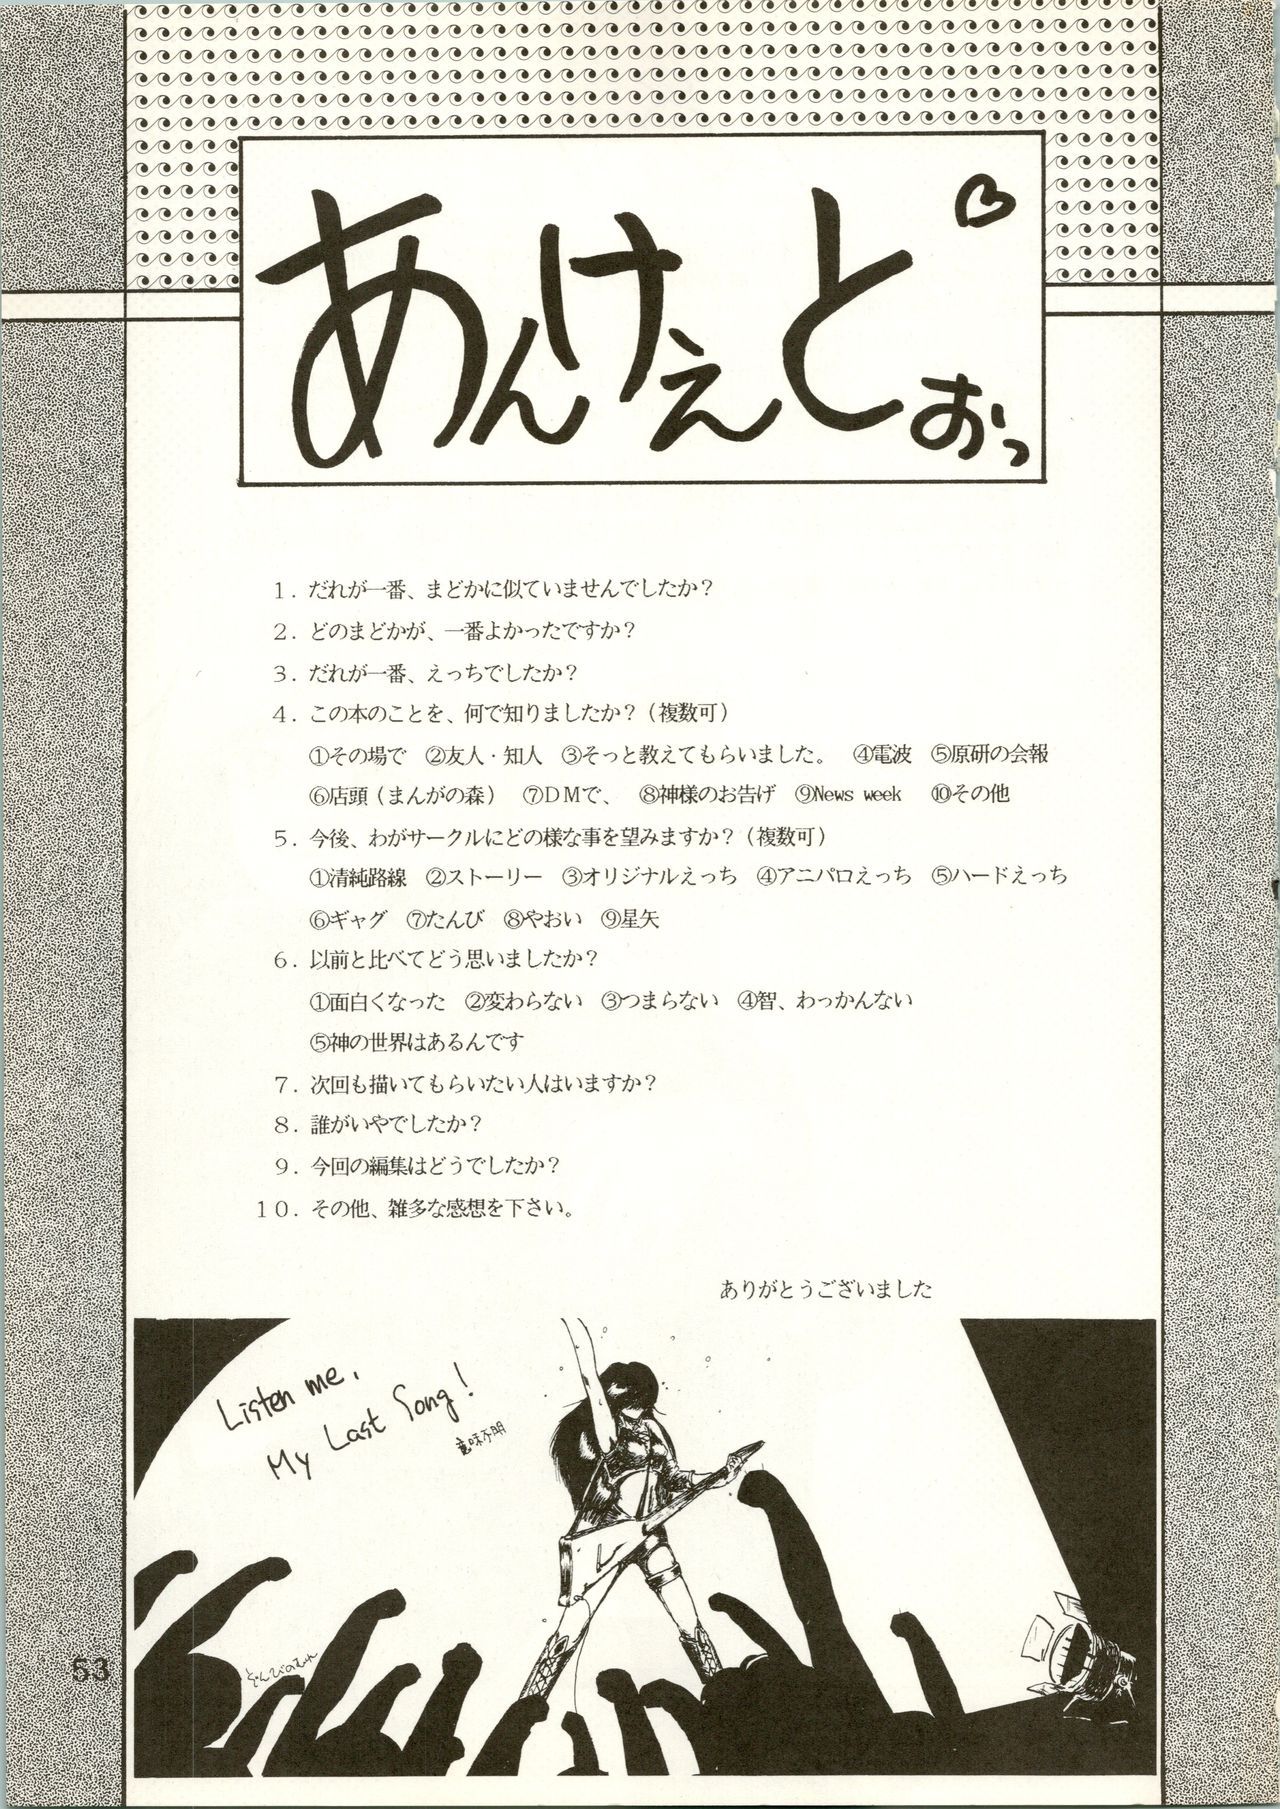 あんけえとおっ♡
１．だれが一番、まどかに似ていませんでしたか？
２．どのまどかが、一番よかったですか？
３．だれが一番、えっちでしたか？
４．この本のことを、何で知りましたか？（複数可）
①その場で　②友人・知人　③そっと教えてもらいました。　④電波　⑤原研の会報
⑥店頭（まんがの森）　⑦ＤＭで、　⑧神様のお告げ　⑨News week　⑩その他
５．今後、わがサークルにどの様な事を望みますか？（複数可）
①清純路線　②ストーリー　③オリジナルえっち　④アニパロえっち　⑤ハードえっち
⑥ギャグ　⑦たんび　⑧やおい　⑨星矢
６．以前と比べてどう思いましたか？
①面白くなった　②変わらない　③つまらない　④智、わっかんない
⑤神の世界はあるんです
７．次回も描いてもらいたい人はいますか？
８．誰がいやでしたか？
９．今回の編集はどうでしたか？
１０．その他、雑多な感想を下さい。
ありがとうございました
Listen me,
My Last Song!
意味不明
ぞんびのむれ
53